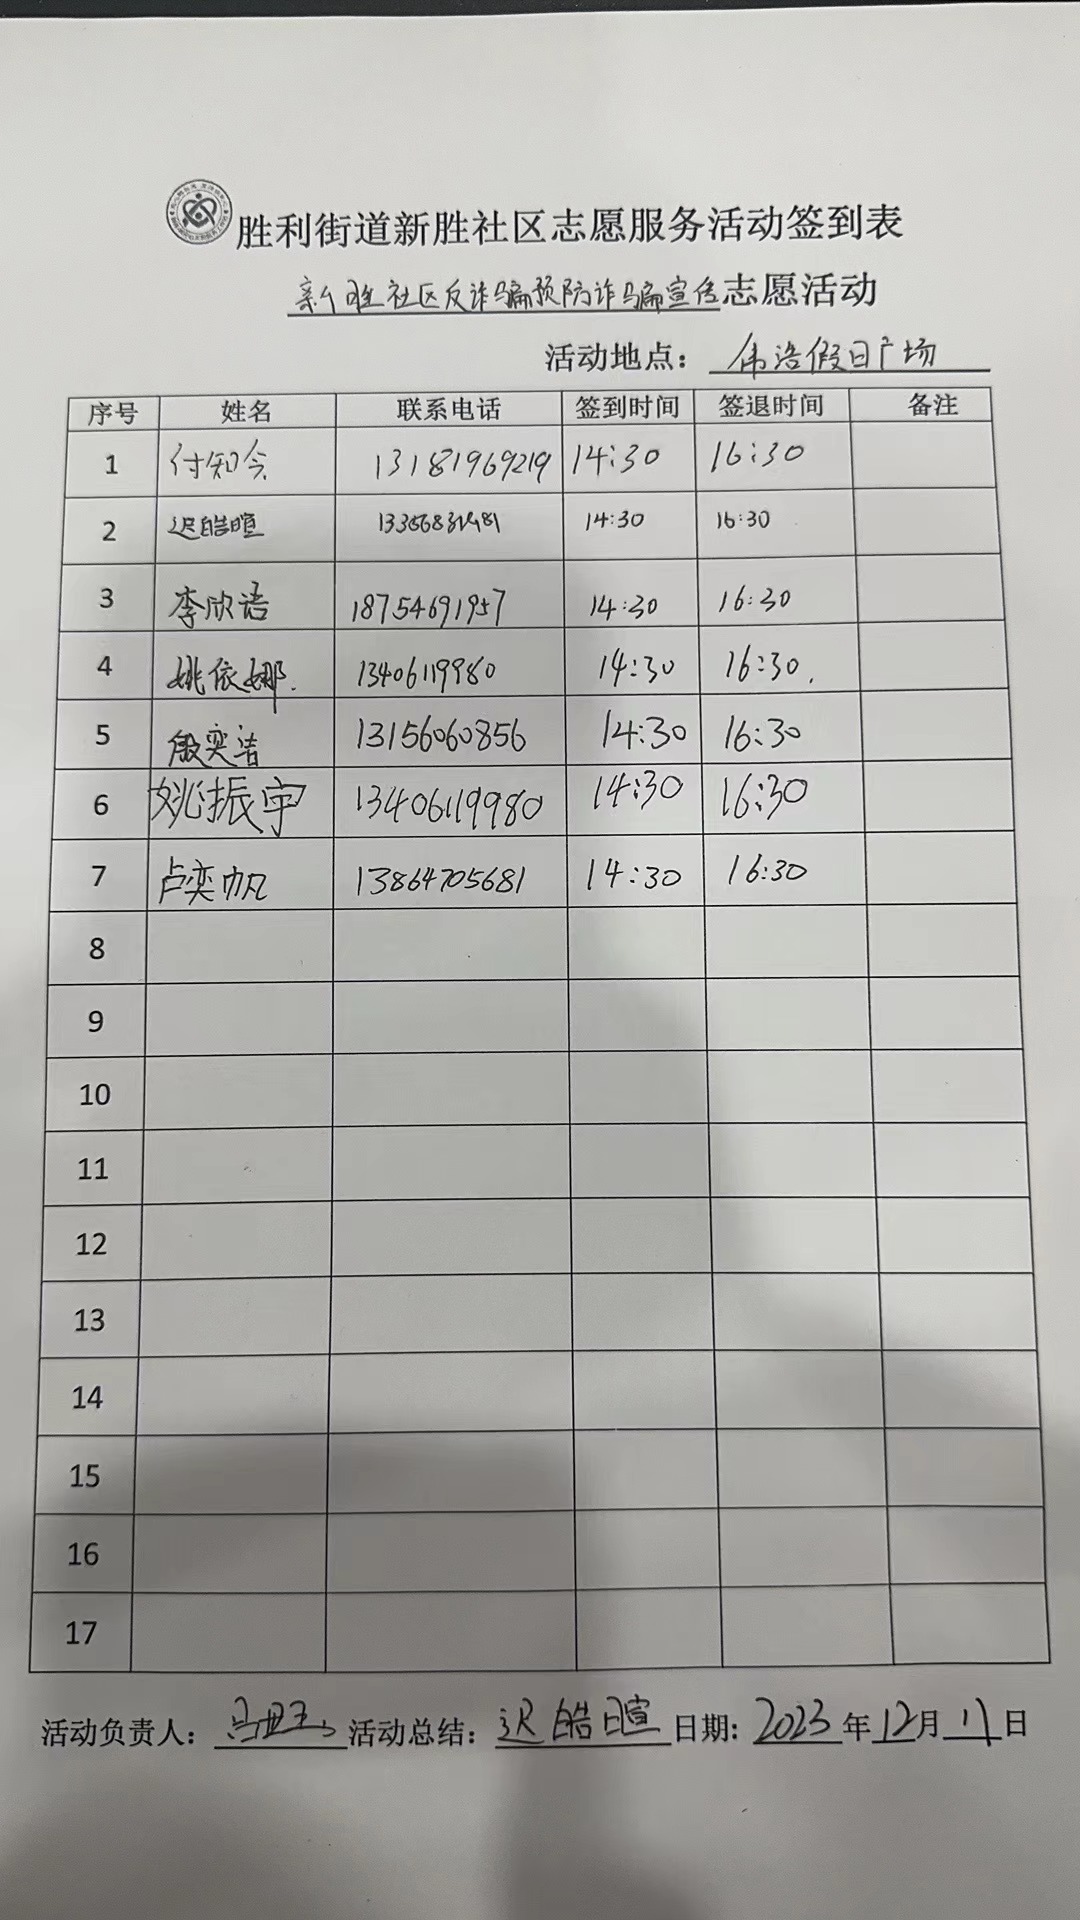 胜利街道新胜社区志愿服务活动签到表
新胜社区反诈骗预防诈骗宣传志愿活动
活动地点：伟浩假日广场
序号 姓名 联系电话 签到时间 签退时间 备注
1 付知令 13181969219 14:30 16:30
2 迟皓暄 14:30 16:30
3 李欣语 18754691957 14:30 16:30
4 姚依娜. 13406119980 14:30 16:30.
5 殷奕洁 13156060856 14:30 16:30
6 姚振宇 13406119980 14:30 16:30
7 卢奕帆 13864705681 14:30 16:30
8
9
10
11
12
13
14
15
16
17
活动负责人： 活动总结：迟皓暄 日期：2023年12月11日